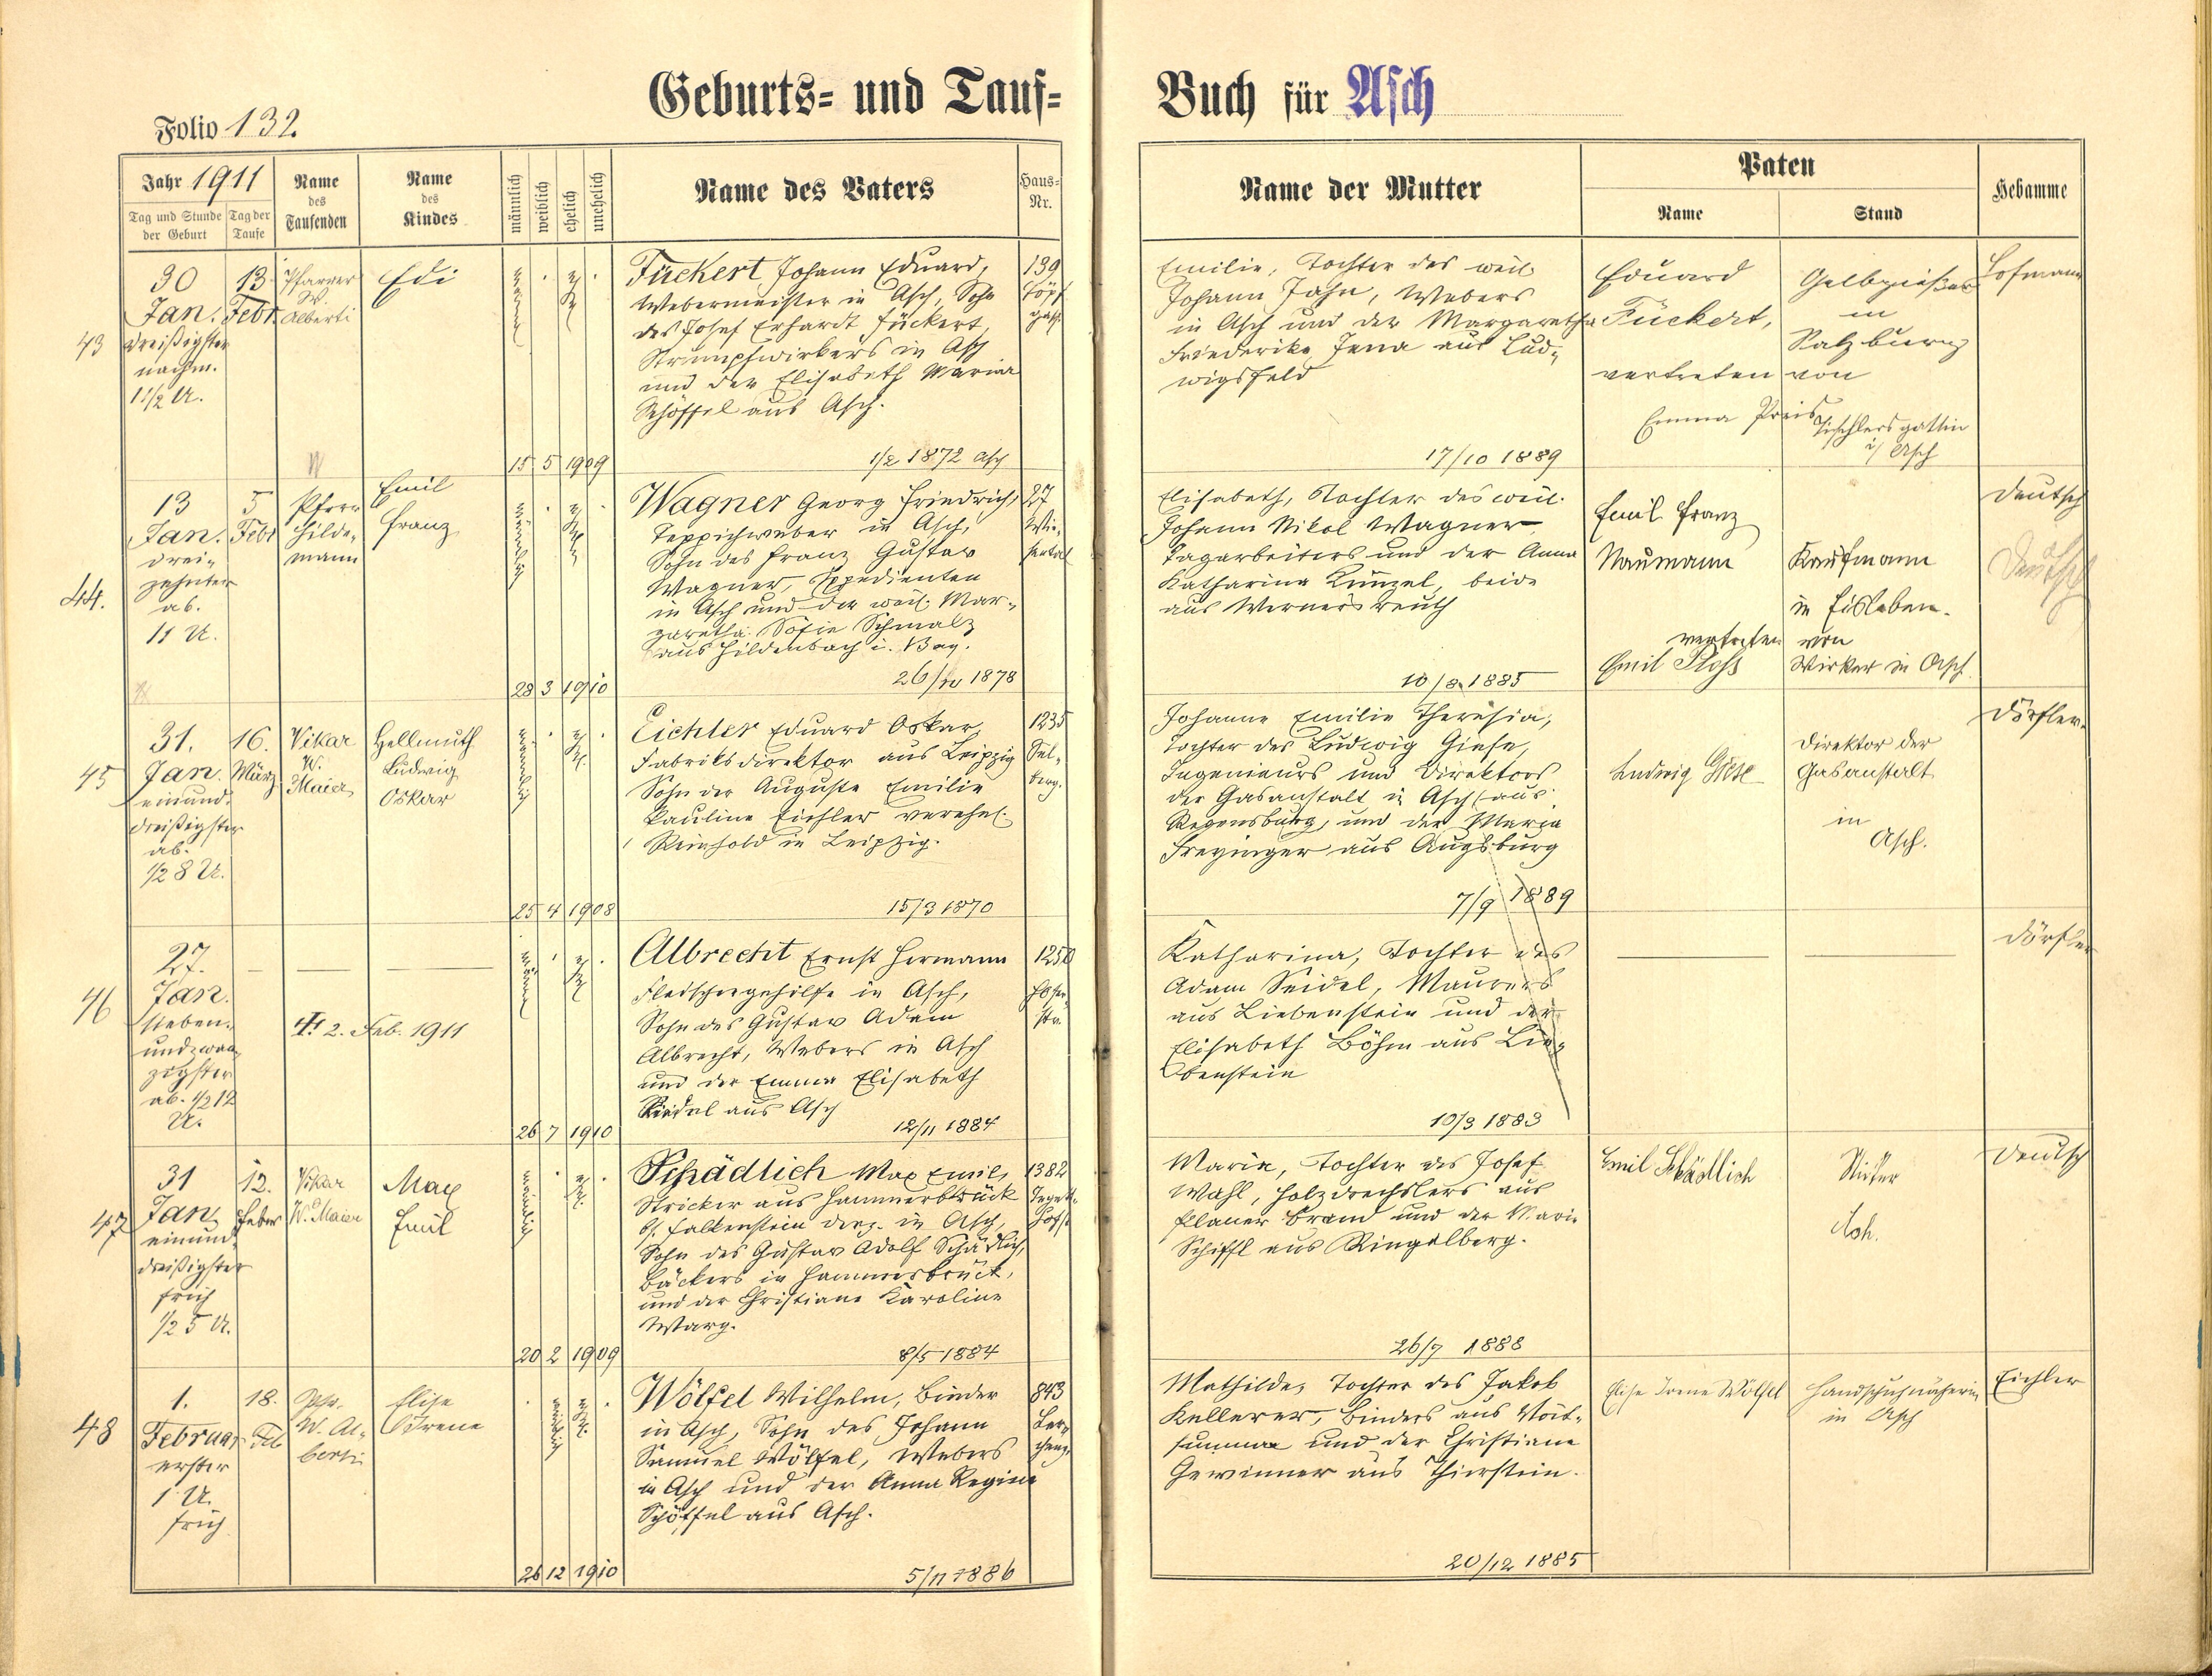 Geburts- und Tauf-
Buch für Asch
Folio 132.
Jahr 1911
Tag und Stunde
der Geburt
Tag der
Taufe
Name
des
Taufenden
Name
des
Kindes
männlich
weiblich
ehelich
unehelich
Name des Vaters
Haus-
Nr.
Name der Mutter
Paten
Name
Stand
Hebamme
43
30
Jan.
dreißigster
nachm.
13.
Febr.
Pfarrer
Dr.
Alberti
Edi
Fückert Johann Eduard,
Webermeister in Asch, Sohn
des Josef Erhardt Fückert,
Strumpfwirkers in Asch
und der Elisabeth Maria
Schöffel aus Asch.
1/2 1872 Asch
139
15 5 1909
Emilie, Tochter des weil.
Johann Jahn, Webers
in Asch und der Margaretha
Friederike Jena aus Lud-
wigsfeld
17/10 1889
Eduard
Fückert,
vertreten von
Emma
Gelbgießer
in
Salzburg
Tischlersgattin
i/ Asch
Hofmann
44.
13
Jan.
drei-
zehnter
ab.
11 U.
5
Febr
Pfarr
Hilde-
mann
Emil
Franz
Wagner Georg Friedrich,
Teppichweber in Asch,
Sohn des Franz Gustav
Wagner, Expedienten
in Asch und der weil. Mar-
garetha Sofie Schmalz
aus Hildenbach i. Bay.
1878
27
28 3 1910
Elisabeth, Tochter des weil.
Johann Nikol Wagner
Tagarbeiters und der Anna
Katharina Künzel, beide
aus Wernersreuth
10/8 1885
Emil Franz
Naumann
vertreten von
Emil Ploß
Kaufmann
in Eisleben.
Wirker in Asch
Deutsch
Deutsch
45
31.
Jan.
einund-
dreißigster
ab.
1/2 8 U.
16.
März
Vikar
W.
Maier
Hellmuth
Ludwig
Oskar
Eichler Eduard Oskar,
Fabriksdirektor aus Leipzig
Sohn der Auguste Emilie
Pauline Eichler verehel.
Reinhold in Leipzig.
15/3 1870
1235
Sel-
berg.
25 4 1908
Johanne Emilie Theresia,
Tochter des Ludwig Giese,
Ingenieurs und Direktors
der Gasanstalt in Asch aus
Regensburg, und der Maria
Freyinger aus Augsburg
7/9 1889
Ludwig Giese
Direktor der
Gasanstalt
in
Asch.
Dörfler
46
27.
Jan.
sieben-
undzwan-
zigster
ab. 1/2 12
U.
2. Feb. 1911
Albrecht Ernst Hermann
Fleischergehilfe in Asch,
Sohn des Gustav Adam
Albrecht, Webers in Asch
und der Emma Elisabeth
Riedel aus Asch
12/11 1884
1250
26 7 1910
Katharina, Tochter des
Adam Seidel, Maurers
aus Liebenstein und der
Elisabeth Böhm aus Lie-
benstein
10/3 1883
Dörfler
47
31
Jan.
einund-
dreißigster
früh
1/2 5 U.
12.
Feber
Vikar
W. Maier
Max
Emil
Schädlich Max Emil,
Stricker aus Hammerbrück
b/ Falkenstein derz. in Asch,
Sohn des Gustav Adolf Schädlich,
Bäckers in Hammerbrück,
und der Christiane Karoline
Warg.
8/5 1884
1382
20 2 1909
Marie, Tochter des Josef
Wahl, Holzdrechslers aus
Planer Brand und der Marie
Schiffl aus Ringelberg.
26/7 1888
Emil Schädlich
Asch.
Deutsch
48
1.
Februar
erster
1 U.
früh
18.
Feb
Pfr.
W. Al-
berti
Elise
Irene
Wölfel Wilhelm, Binder
in Asch, Sohn des Johann
Samuel Wölfel, Webers
in Asch und der Anna Regina
Schöffel aus Asch.
5/11 1886
843
Ler-
cheng.
26 12 1910
Mathilde, Tochter des Jakob
Kellerer, Binders aus Voit-
sumra und der Christiane
Gewinner aus Thierstein.
20/12 1885
Elise Irene Wölfel
Handschuhnäherin
in Asch
Eichler